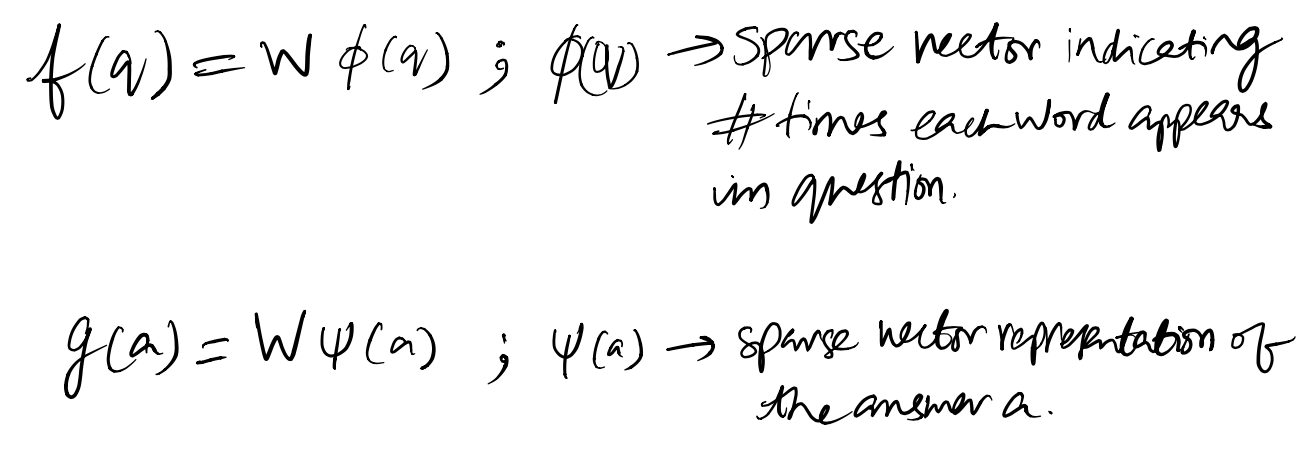 f(q) = W φ(q) ; φ(q) → sparse vector indicating
# times each word appears
in question.
g(a) = W ψ(a) ; ψ(a) → sparse vector representation of
the answer a.